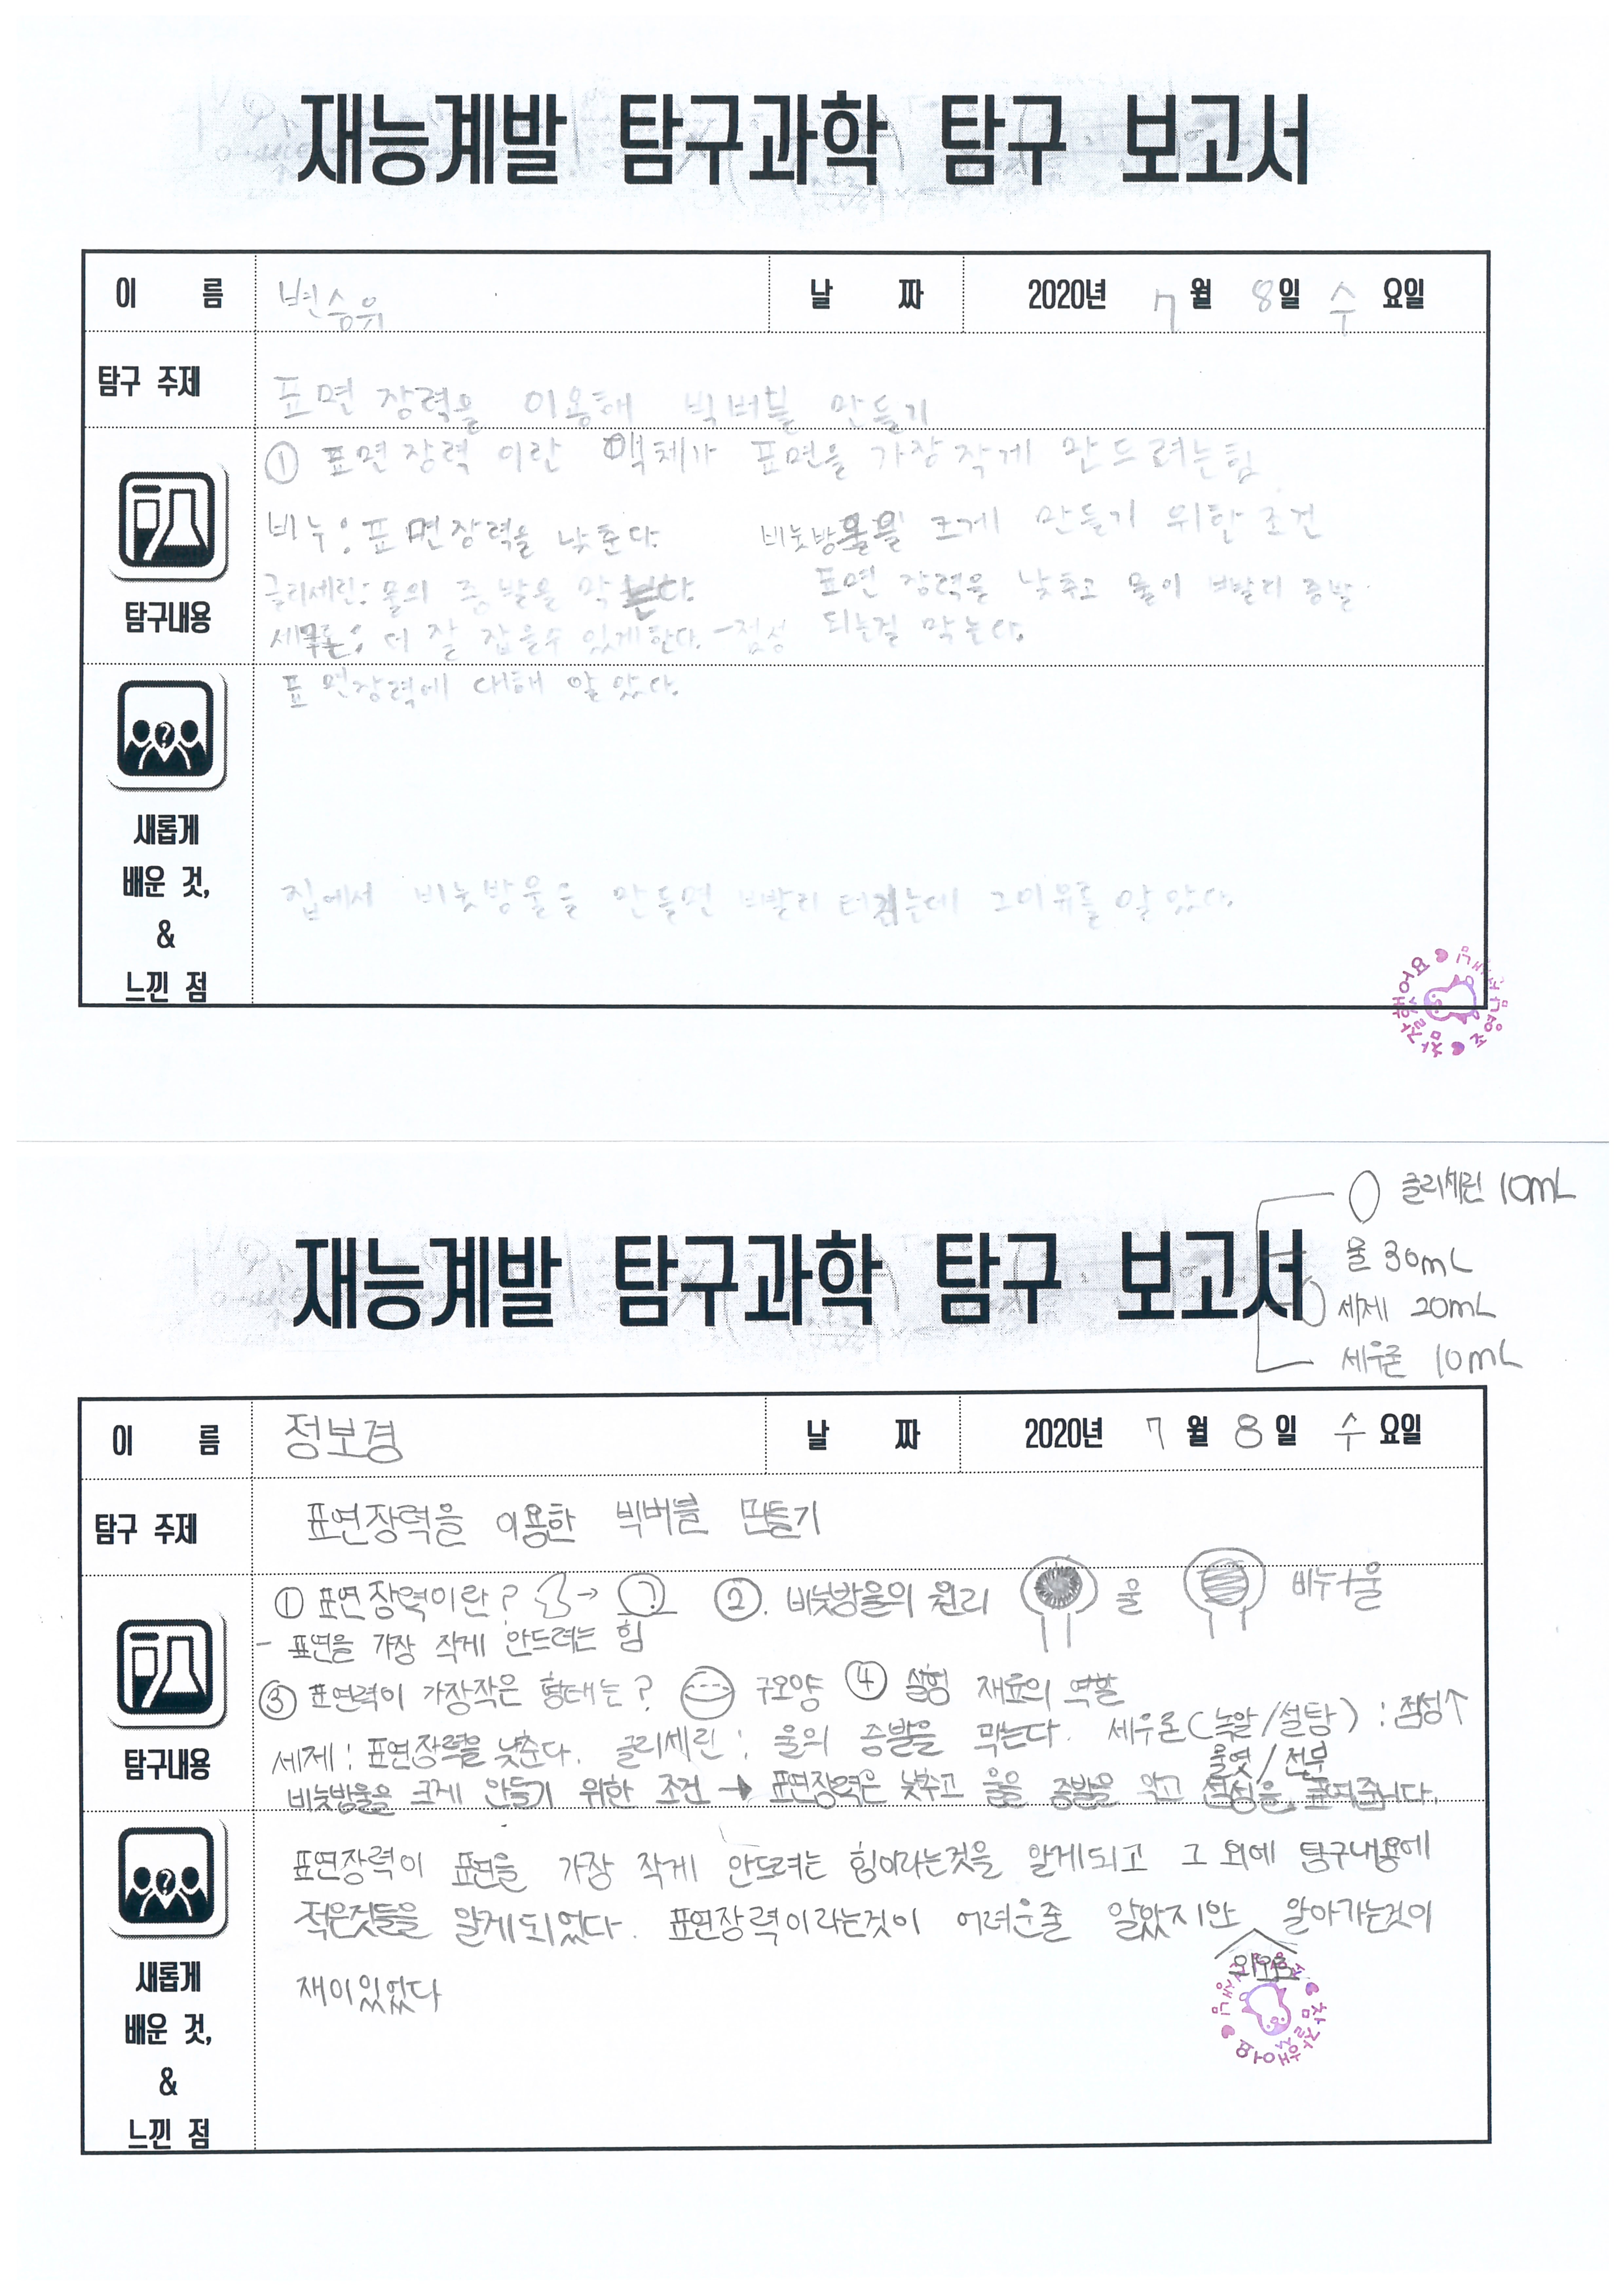 재능계발 탐구과학 탐구 보고서
이 름 변승유 날 짜 2020년 7월 8일 수 요일
탐구 주제 표면 장력을 이용해 빅버블 만들기
① 표면장력 이란 액체가 표면을 가장 작게 만드려는힘
비누: 표면장력을 낮춘다. 비눗방울을 크게 만들기 위한 조건
글리세린: 물의 증발을 막는다. 표면 장력을 낮추고 물이 빨리 증발
탐구내용
세우론: 더 잘 잡을수 있게한다. -점성 되는걸 막는다.
표면장력에 대해 알았다.
새롭게
배운 것,
&
느낀 점
집에서 비눗방울을 만들면 빨리 터지는데 그이유를 알았다.
참잘했어요
재능계발 탐구과학 탐구 보고서
글리세린 10mL
물 30mL
세제 20mL
세우론 10mL
이 름 정보경 날 짜 2020년 7월 8일 수 요일
탐구 주제 표면장력을 이용한 빅버블 만들기
① 표면장력이란? → ②. 비눗방울의 원리 물 비누+물
- 표면을 가장 작게 만드려는 힘
③ 표면력이 가장작은 형태는? 구모양 ④ 실험 재료의 역할
탐구내용
세제: 표면장력을 낮춘다. 글리세린: 물의 증발을 막는다. 세우론(녹말/설탕): 점성↑
물엿/전분
비눗방울을 크게 만들기 위한 조건 → 표면장력은 낮추고 물을 증발을 막고 점성을 높여줍니다.
표면장력이 표면을 가장 작게 만드려는 힘이라는것을 알게되고 그 외에 탐구내용에
적은것들을 알게되었다. 표면장력이라는것이 어려운줄 알았지만 알아가는것이
재미있었다
새롭게
배운 것,
&
느낀 점
참잘했어요